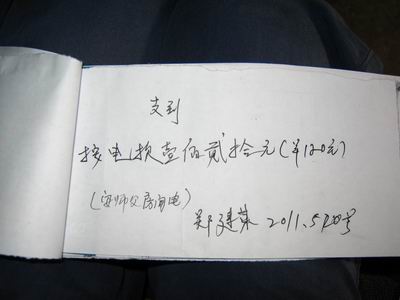 支到
接电损壹佰贰拾元(￥120元)
(安师父房间电)
郑建荣 2011.5月20号